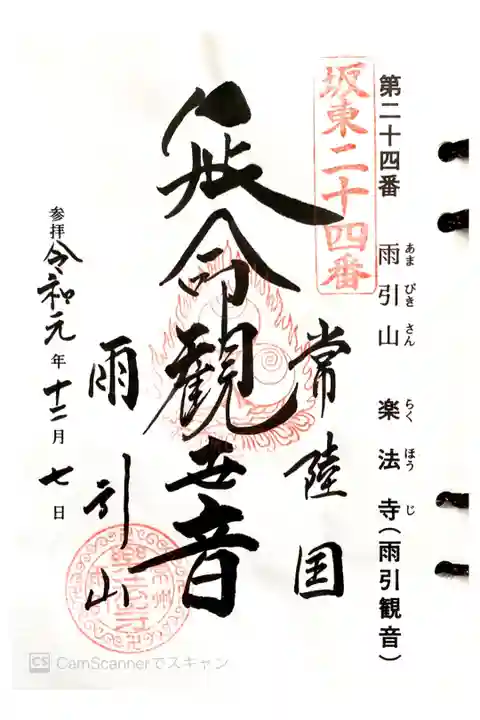 第二十四番 雨引山 楽法寺(雨引観音)
あま びき さん らく ほう じ
坂東二十四番
常陸国
延命観世音
雨引山
参拝令和元年十二月七日
CS CamScannerでスキャン